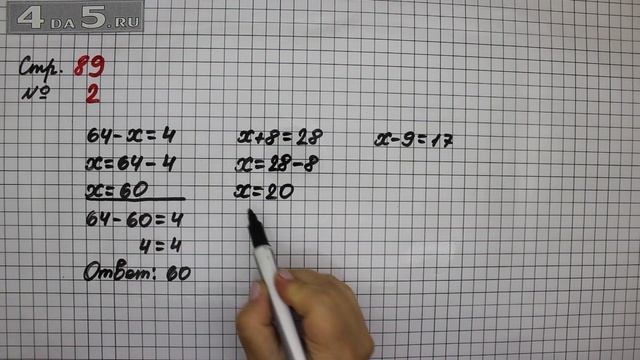 4 DA 5.RU
Стр. 89
№ 2
64-x=4
x=64-4
x=60
64-60=4
4=4
Ответ: 60
x+8=28
x=28-8
x=20
x-9=17